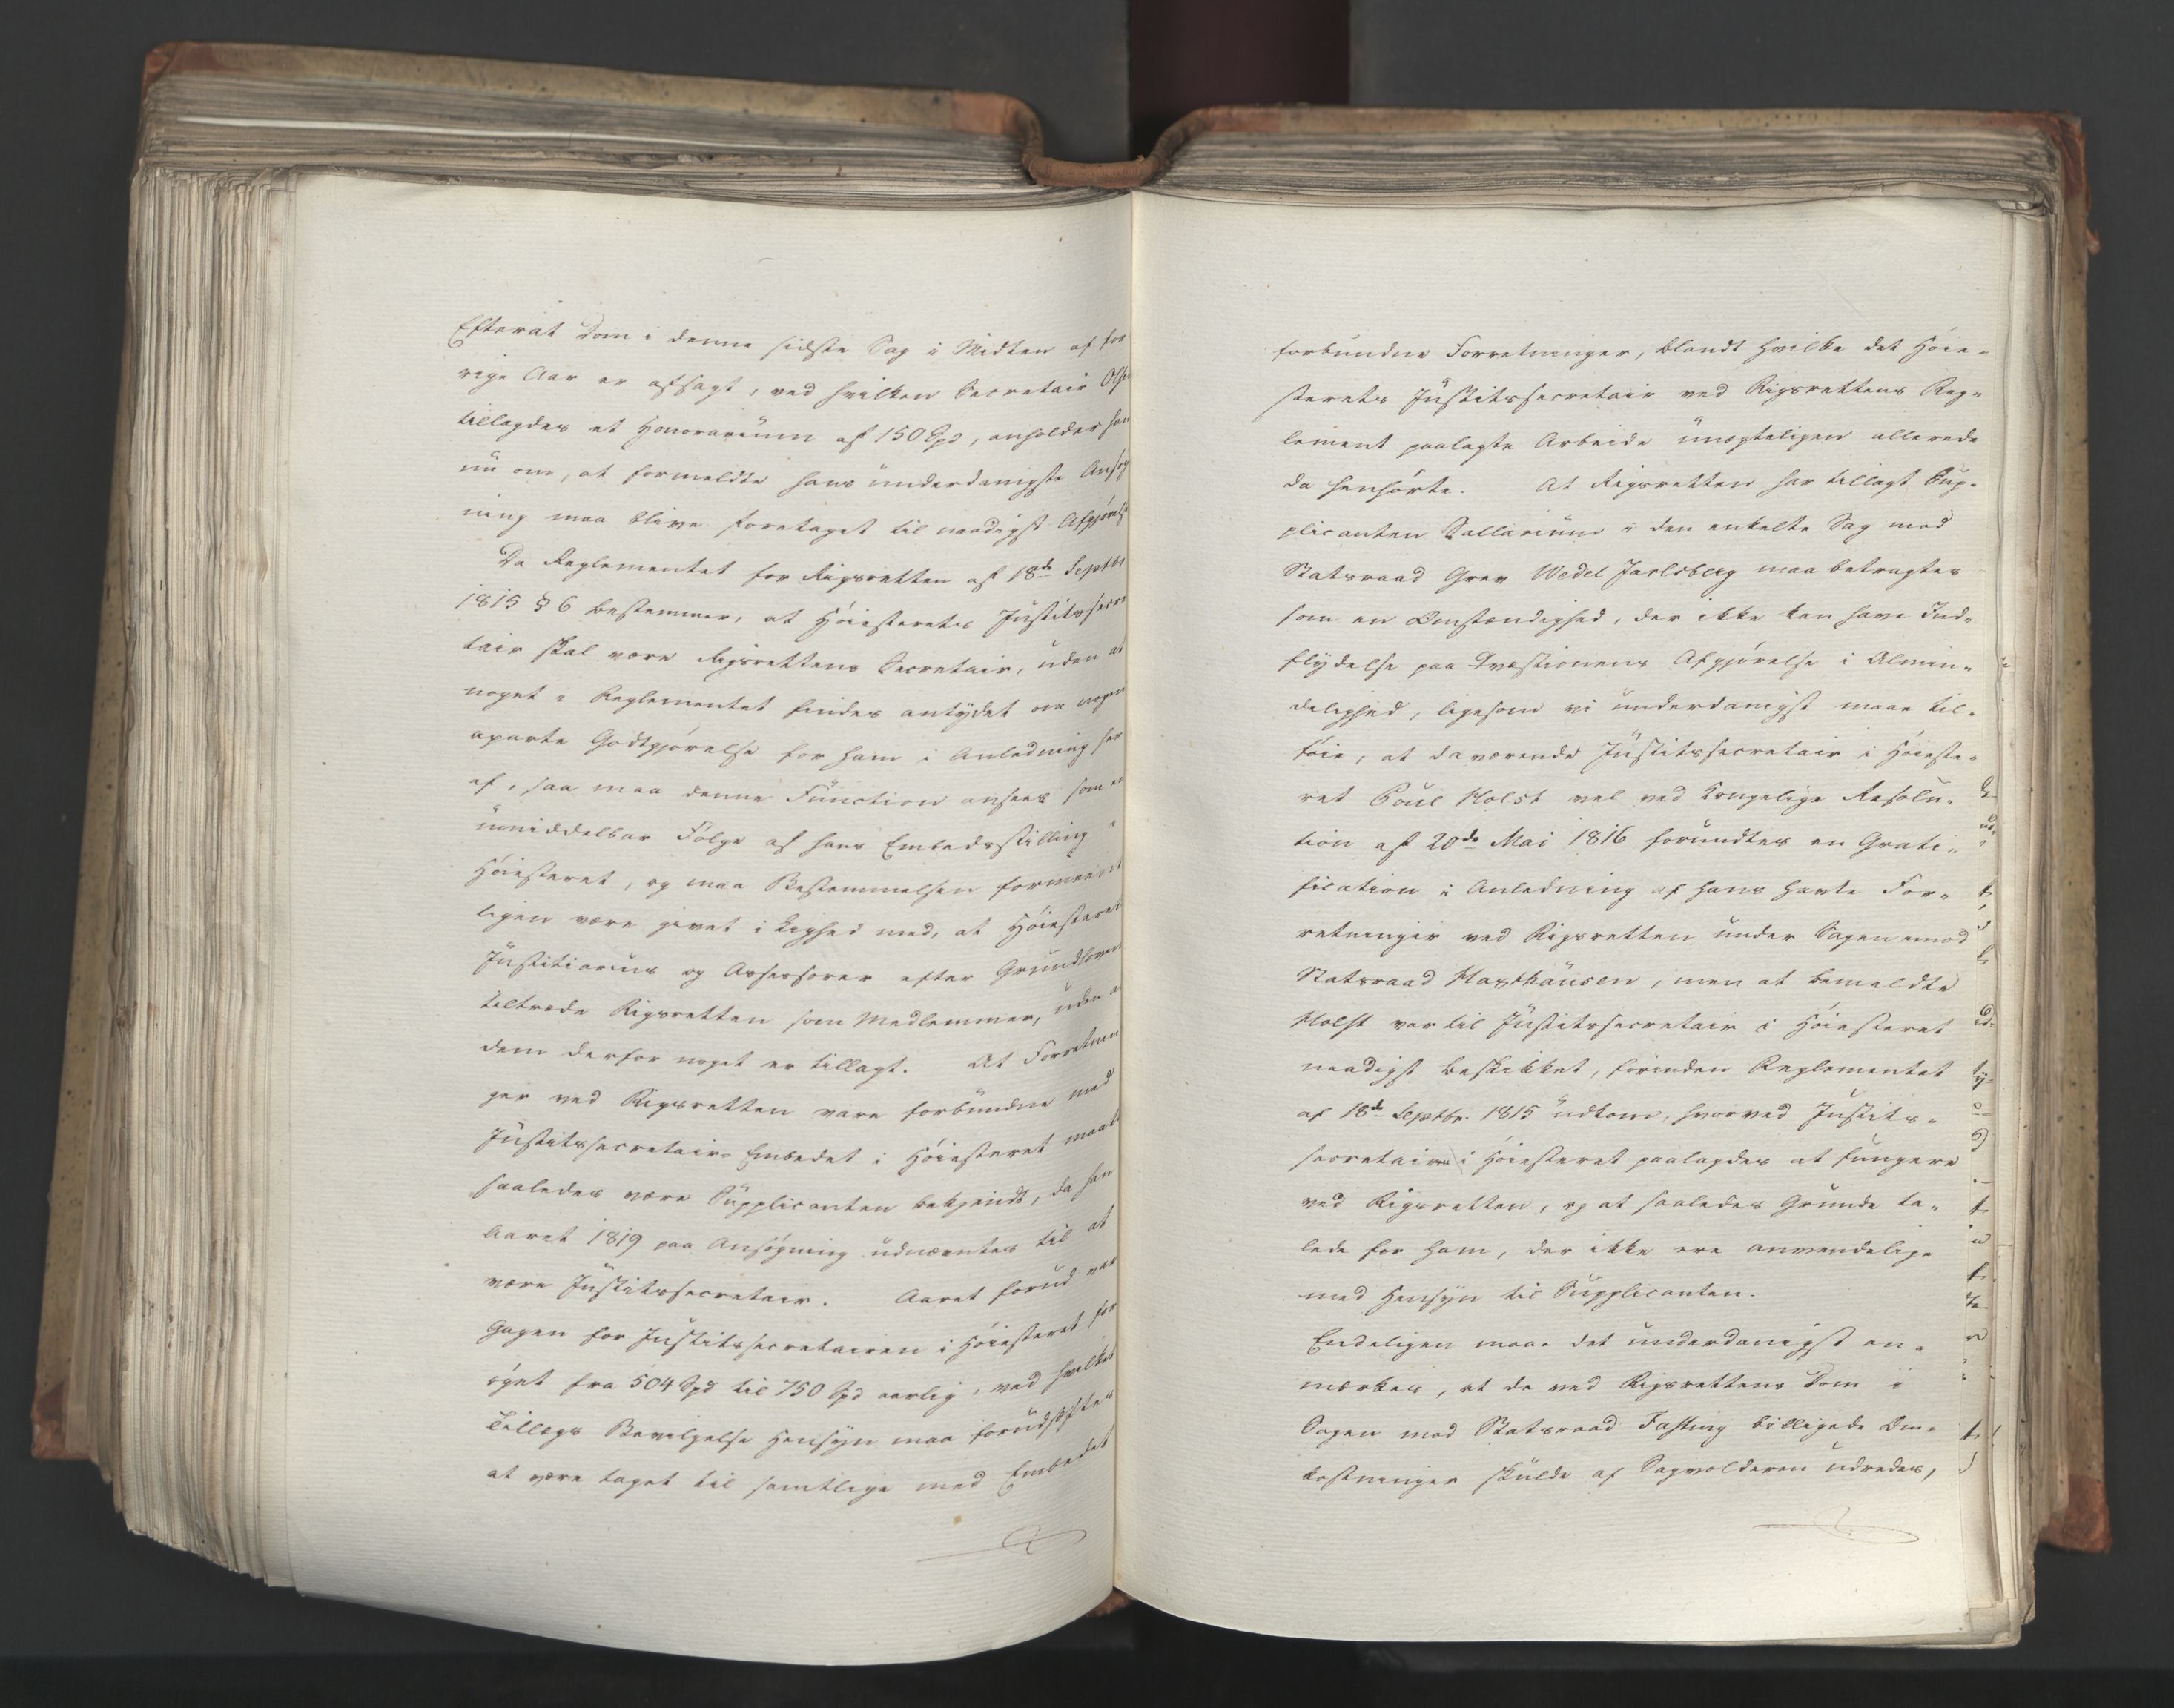 Efterat Dom i denne sidste Sag i Midten af for
rige Aar er afsagt, ved hvilken Secretair Olsen
tillagdes et Honorarium af 150 Spd, anholder han
nu om, at formeldte hans underdanigste Ansøg
ning maa blive foretaget til naadigst Afgjørelse
Da Reglementet for Rigsretten af 18de Septbr
1815 § 6 bestemmer, at Høiesterets Justitssecre
tair skal være Rigsrettens Secretair, uden at
noget i Reglementet findes antydet om nogen
aparte Godtgjørelse for ham i Anledning her
af, saa maa denne Function ansees som en
umiddelbar Følge af hans Embedsstilling i
Høiesteret, og maa Bestemmelsen formeent
ligen være givet i Lighed med, at Høiesteret
Justitiarius og Assessorer efter Grundloven
tiltræde Rigsretten som Medlemmer, uden at
dem derfor noget er tillagt. At Forretnin
ger ved Rigsretten vare forbundne med
Justitssecretair-Embedet i Høiesteret maatte
saaledes være Supplicanten bekjendt, da han
Aaret 1819 paa Ansøgning udnævntes til at
være Justitssecretair. Aaret forud var
Gagen for Justitssecretairen i Høiesteret for
øget fra 504 Spd til 750 Spd aarlig, ved hvilket
Tillægs Bevilgelse Hensyn maa forudsættes
at være taget til samtlige med Embedet
forbundne Forretninger, blandt hvilke det Høie-
sterets Justitssecretair ved Rigsrettens Reg-
lement paalagte Arbeide unegteligen allerede
da henhørte. At Rigsretten har tillagt Sup-
plicanten Sallarium i den enkelte Sag mod
Statsraad Grev Wedel Jarlsberg maa betragtes
som en Omstændighed, der ikke kan have Ind-
flydelse paa Qvæstionens Afgjørelse i Almin-
delighed, ligesom vi underdanigst maae til-
føie, at daværende Justitssecretair i Høieste-
ret Poul Holst vel ved Kongelige Resolu-
tion af 20de Mai 1816 forundtes en Grati-
fication i Anledning af hans havte For-
retninger ved Rigsretten under Sagen mod
Statsraad Haxthausen, men at bemeldte
Holst var til Justitssecretair i Høiesteret
naadigst beskikket, førinden Reglementet
af 18de Septbr. 1815 udkom, hvorved Justits-
secretairen i Høiesteret paalagdes at fungere
ved Rigsretten, og at saaledes Grunde ta-
lede for ham, der ikke ere anvendelige
med Hensyn til Supplicanten.
Endeligen maae det underdanigst an-
mærkes, at de ved Rigsrettens Dom i
Sagen mod Statsraad Fasting billigede Om-
kostninger skulde af Sagvolderen udredes,